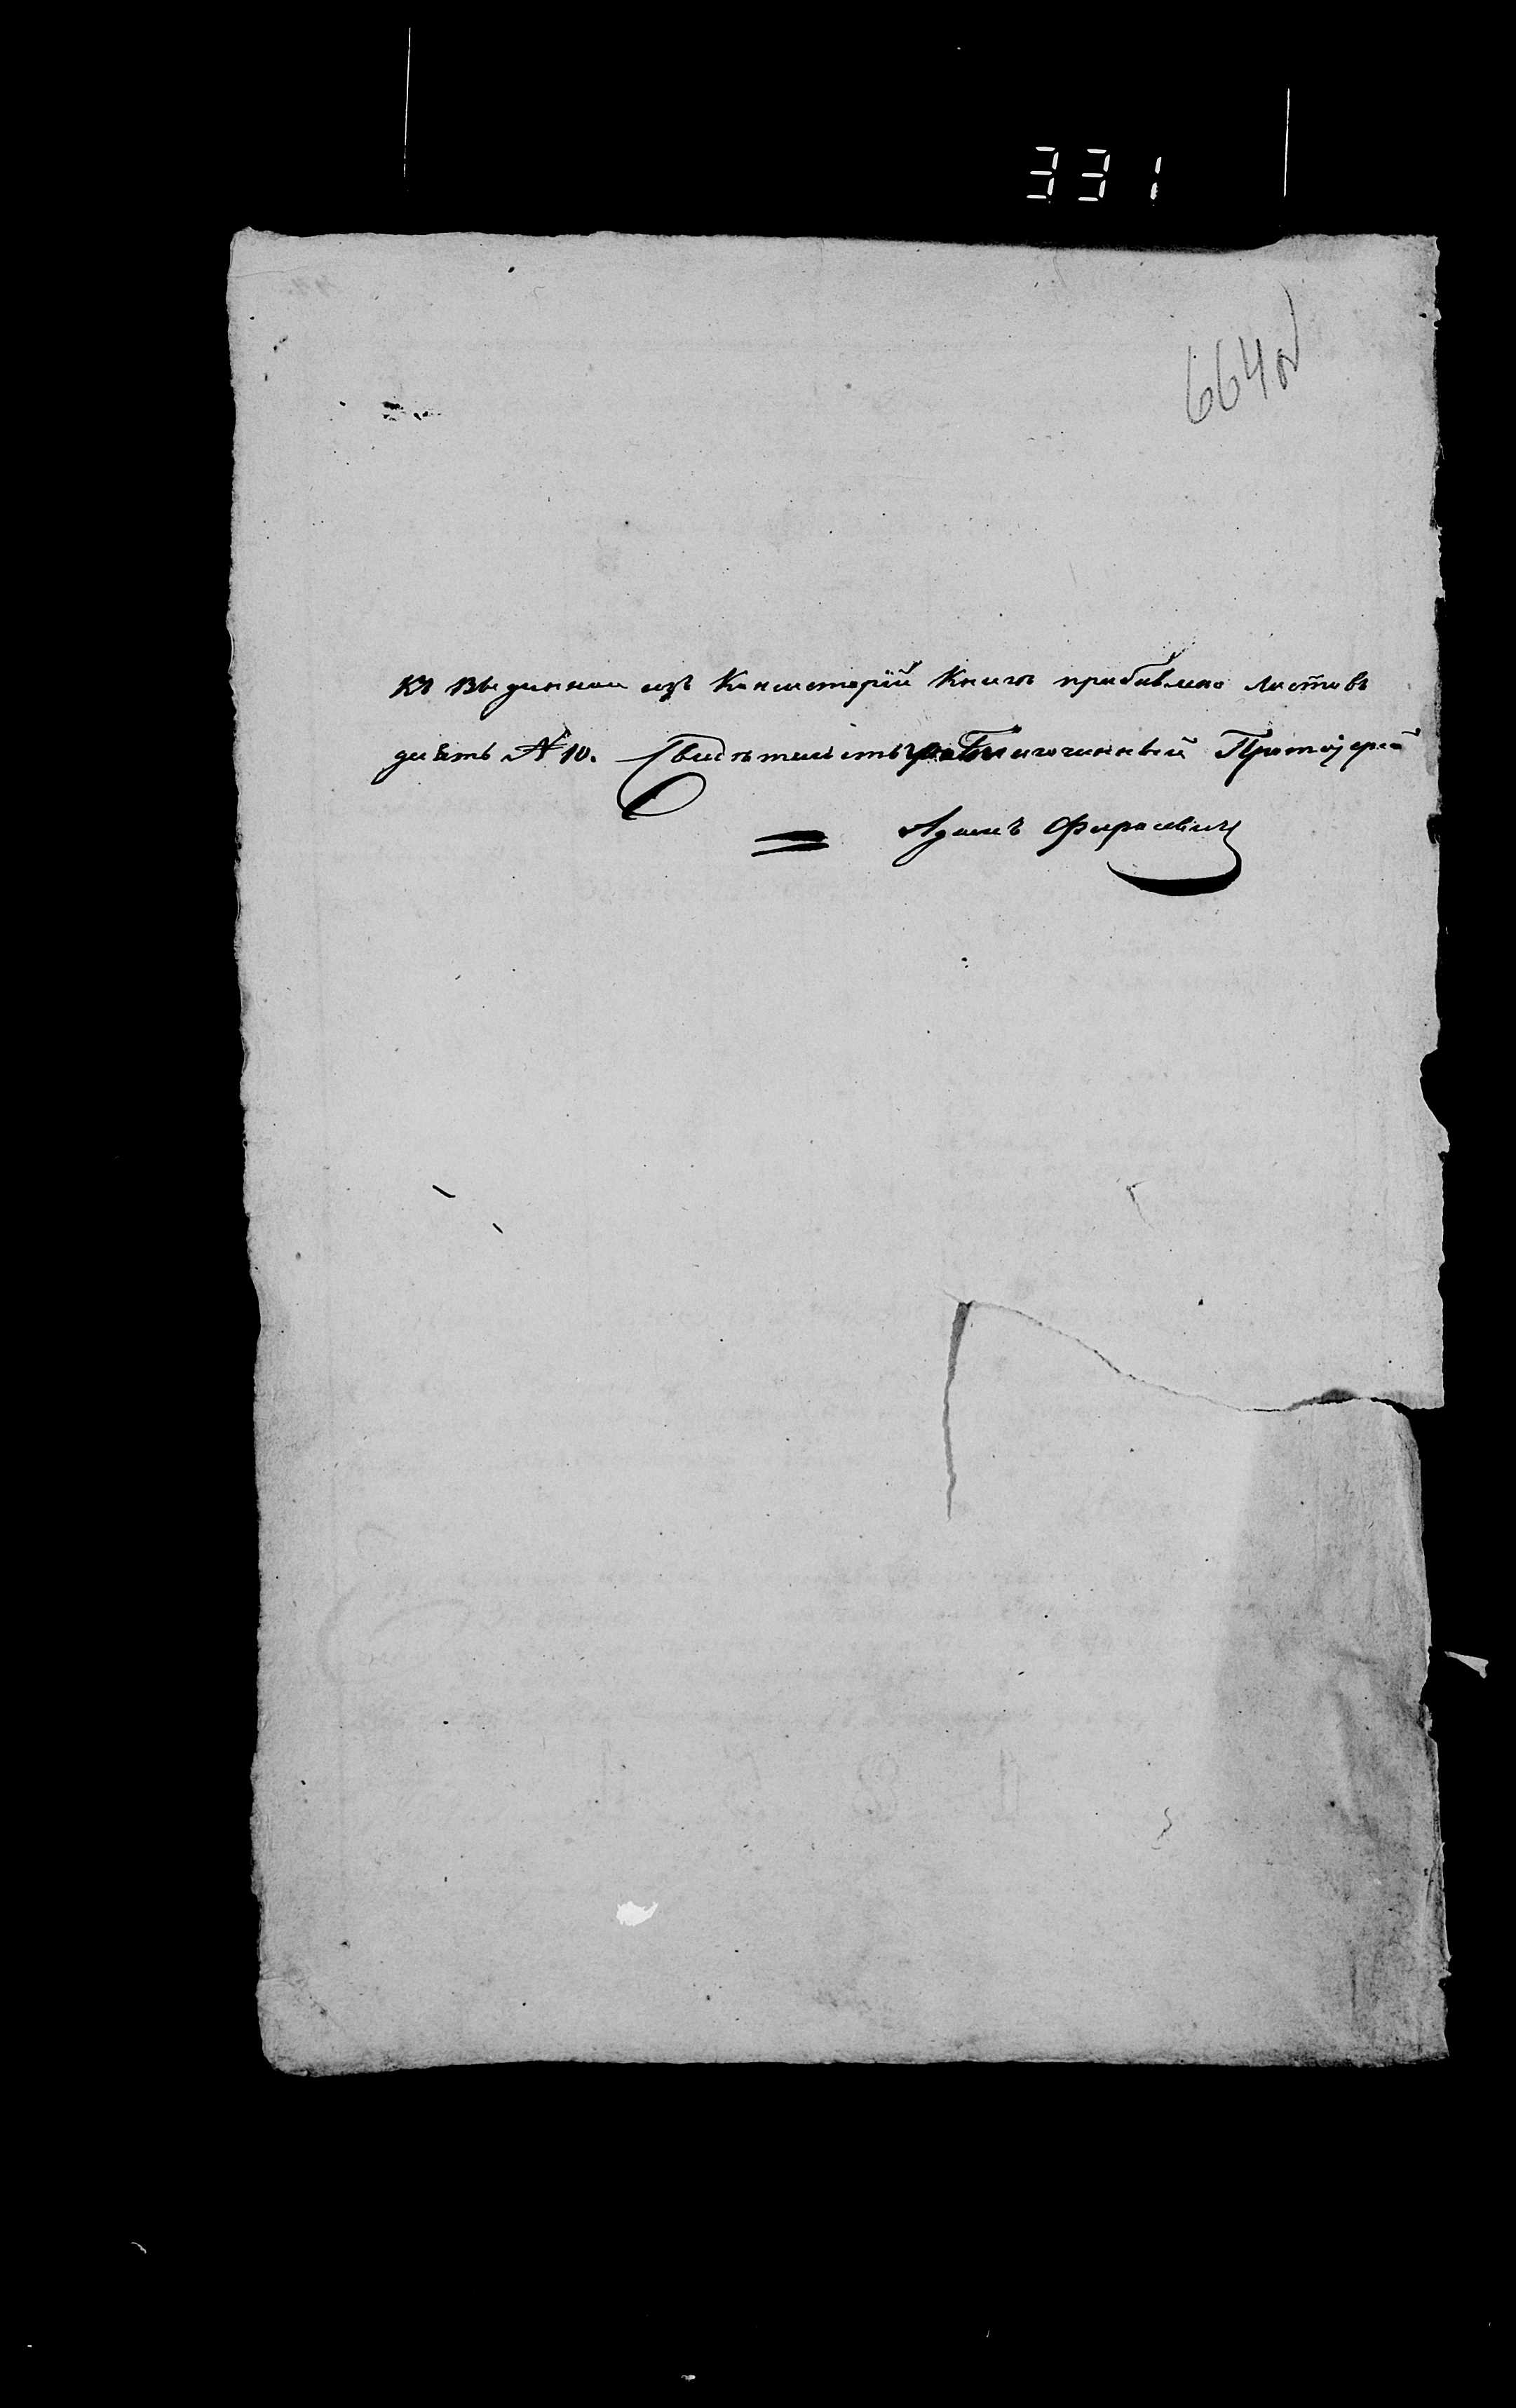 331
664 об
Къ Выданной изъ Консисторіи Книгѣ прибавлено листовъ
десять № 10. Свидѣтельствовалъ Благочинный Протоіерей
Адамъ Фирасевичъ